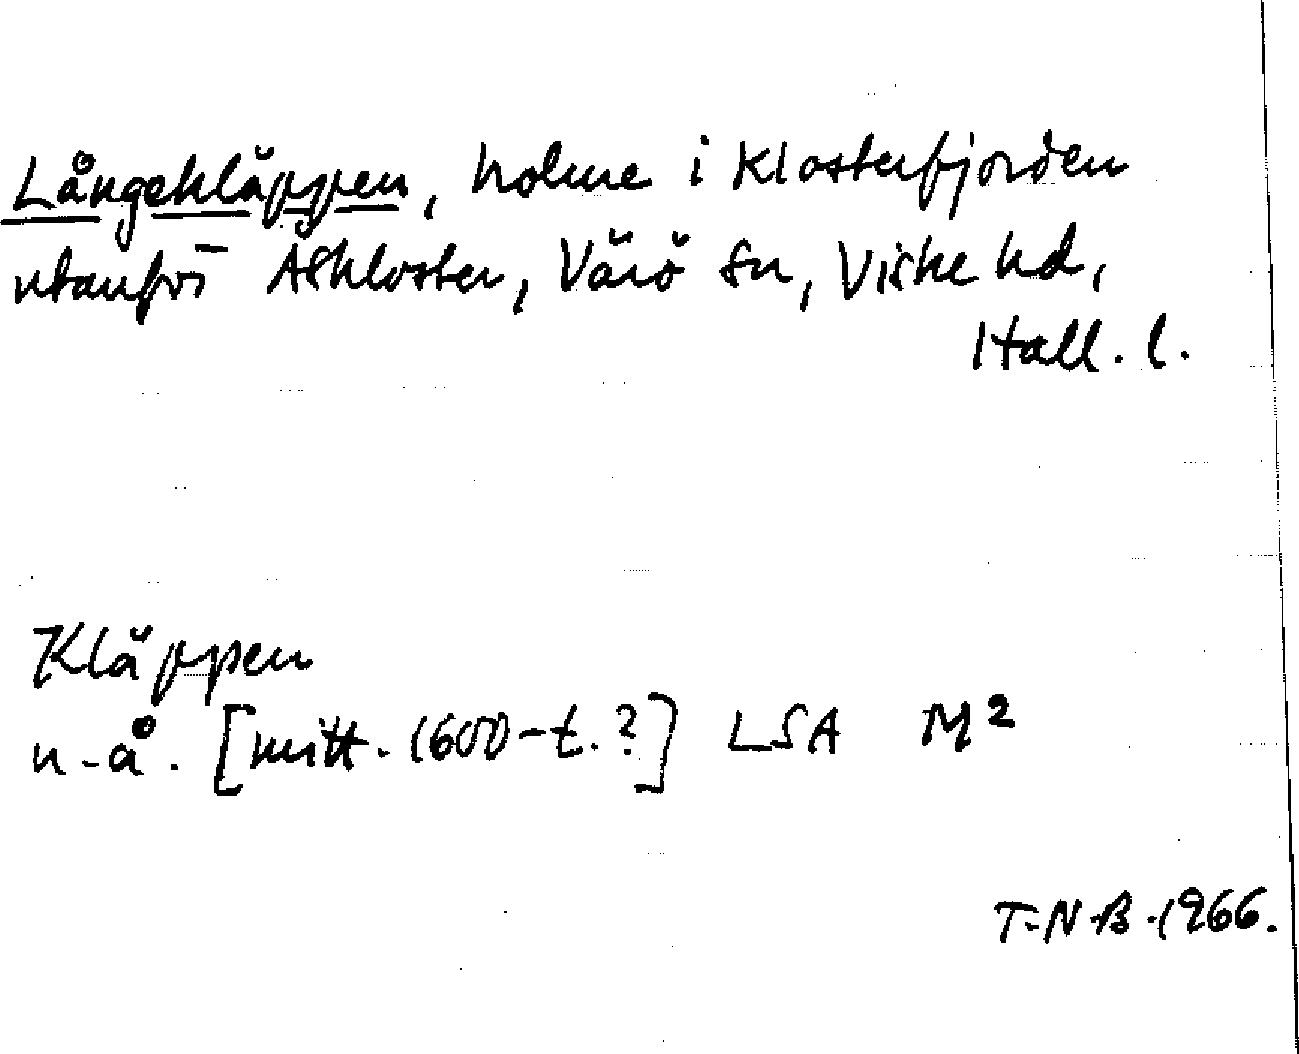 Långekläppen, holme i Klosterfjorden
utanför Åskloster, Värö sn, Viske hd,
Hall. l.
Kläppen
u. å. [mitt. 1600-t.?] LSA M²
T.N.B. 1966.